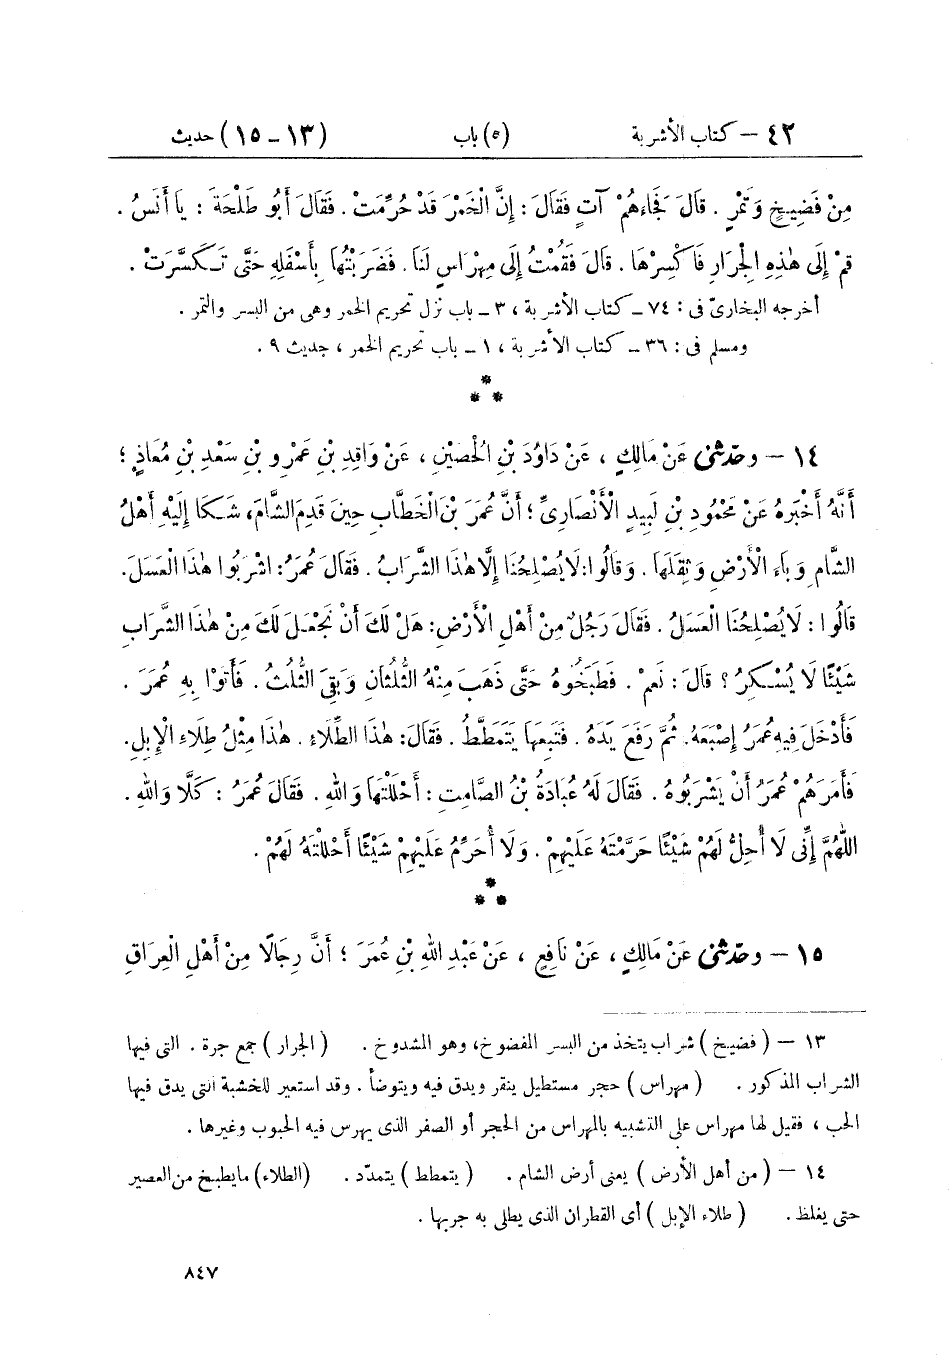 ٤٢ – كتاب الأشربة (٥) باب (١٣ – ١٥) حديث
مِنْ فَضِيخٍ وَتَمْرٍ . قَالَ فَجَاءَهُمْ آتٍ فَقَالَ : إِنَّ الْخَمْرَ قَدْ حُرِّمَتْ . فَقَالَ أَبُو طَلْحَةَ : يَا أَنَسُ .
قُمْ إِلَى هٰذِهِ الْجِرَارِ فَاكْسِرْهَا . قَالَ فَقُمْتُ إِلَى مِهْرَاسٍ لَنَا . فَضَرَبْتُهَا بِأَسْفَلِهِ حَتَّى تَكَسَّرَتْ .
أخرجه البخارىّ فى : ٧٤ – كتاب الأشربة ، ٣ – باب نزل تحريم الخمر وهى من البسر والتمر .
ومسلم فى : ٣٦ – كتاب الأشربة ، ١ – باب تحريم الخمر ، حديث ٩ .
***
١٤ – وحدّثنى عَنْ مَالِكٍ ، عَنْ دَاوُدَ بْنِ الْحُصَيْنِ ، عَنْ وَاقِدِ بْنِ عَمْرِو بْنِ سَعْدِ بْنِ مُعَاذٍ ؛
أَنَّهُ أَخْبَرَهُ عَنْ مَحْمُودِ بْنِ لَبِيدٍ الْأَنْصَارِىِّ ؛ أَنَّ عُمَرَ بْنَ الْخَطَّابِ حِينَ قَدِمَ الشَّامَ ، شَكَا إِلَيْهِ أَهْلُ
الشَّامِ وَبَاءَ الْأَرْضِ وَثِقَلَهَا . وَقَالُوا : لَا يُصْلِحُنَا إِلَّا هٰذَا الشَّرَابُ . فَقَالَ عُمَرُ : اشْرَبُوا هٰذَا الْعَسَلَ .
قَالُوا : لَا يُصْلِحُنَا الْعَسَلُ . فَقَالَ رَجُلٌ مِنْ أَهْلِ الْأَرْضِ : هَلْ لَكَ أَنْ نَجْعَلَ لَكَ مِنْ هٰذَا الشَّرَابِ
شَيْئًا لَا يُسْكِرُ ؟ قَالَ : نَعَمْ . فَطَبَخُوهُ حَتَّى ذَهَبَ مِنْهُ الثُّلُثَانِ وَبَقِىَ الثُّلُثُ . فَأَتَوْا بِهِ عُمَرَ .
فَأَدْخَلَ فِيهِ عُمَرُ إِصْبَعَهُ . ثُمَّ رَفَعَ يَدَهُ . فَتَبِعَهَا يَتَمَطَّطُ . فَقَالَ : هٰذَا الطِّلَاءِ . هٰذَا مِثْلُ طِلَاءِ الْإِبِلِ .
فَأَمَرَهُمْ عُمَرُ أَنْ يَشْرَبُوهُ . فَقَالَ لَهُ عُبَادَةُ بْنُ الصَّامِتِ : أَحْلَلْتَهَا وَاللهِ . فَقَالَ عُمَرُ : كَلَّا وَاللهِ .
اللّٰهُمَّ إِنِّى لَا أُحِلُّ لَهُمْ شَيْئًا حَرَّمْتَهُ عَلَيْهِمْ . وَلَا أُحَرِّمُ عَلَيْهِمْ شَيْئًا أَحْلَلْتَهُ لَهُمْ .
***
١٥ – وحدّثنى عَنْ مَالِكٍ ، عَنْ نَافِعٍ ، عَنْ عَبْدِ اللهِ بْنِ عُمَرَ ؛ أَنَّ رِجَالًا مِنْ أَهْلِ الْعِرَاقِ
١٣ – ( فضيخ ) شراب يتخذ من البسر المفضوخ ، وهو المشدوخ . ( الجرار ) جمع جرة . التى فيها
الشراب المذكور . ( مهراس ) حجر مستطيل ينقر ويدق فيه ويتوضأ . وقد استعير للخشبة التى يدق فيها
الحب ، فقيل لها مهراس على التشبيه بالمهراس من الحجر أو الصفر الذى يهرس فيه الحبوب وغيرها .
١٤ – ( من أهل الأرض ) يعنى أرض الشام . ( يتمطط ) يتمدّد . ( الطلاء ) ما يطبخ من العصير
حتى يغلظ . ( طلاء الإبل ) أى القطران الذى يطلى به جربها .
٨٤٧